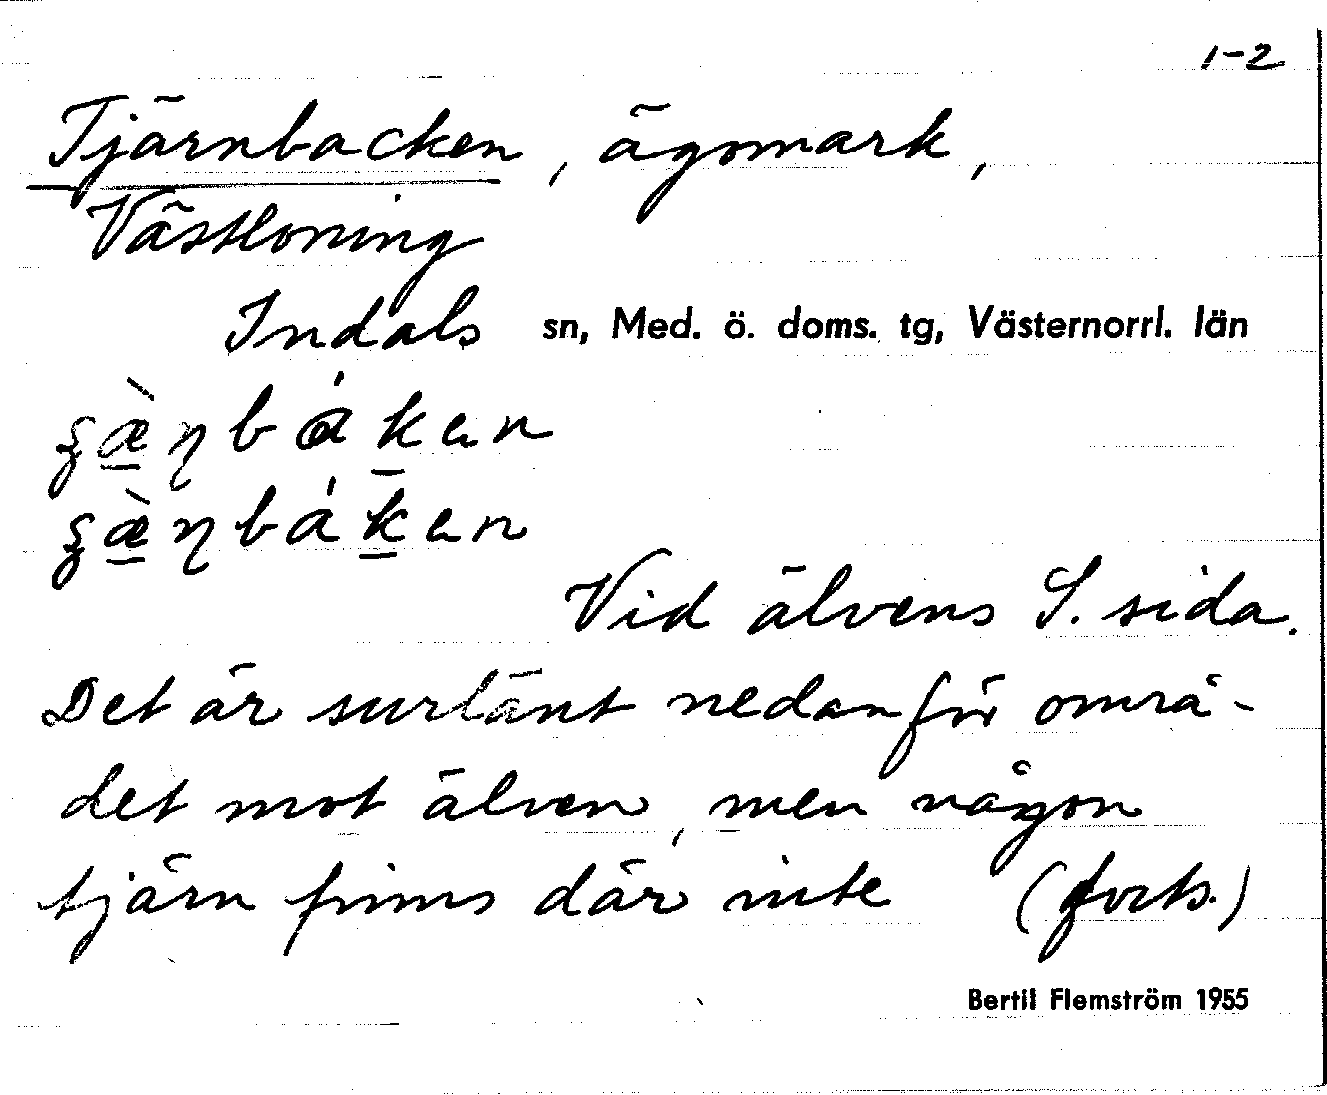 1-2
Tjärnbacken, ägomark,
Västloning
Indals sn, Med. ö. doms. tg, Västernorrl. län
Vid älvens S. sida.
Det är surlänt nedanför områ-
det mot älven, men någon
tjärn finns där inte (forts.)
Bertil Flemström 1955